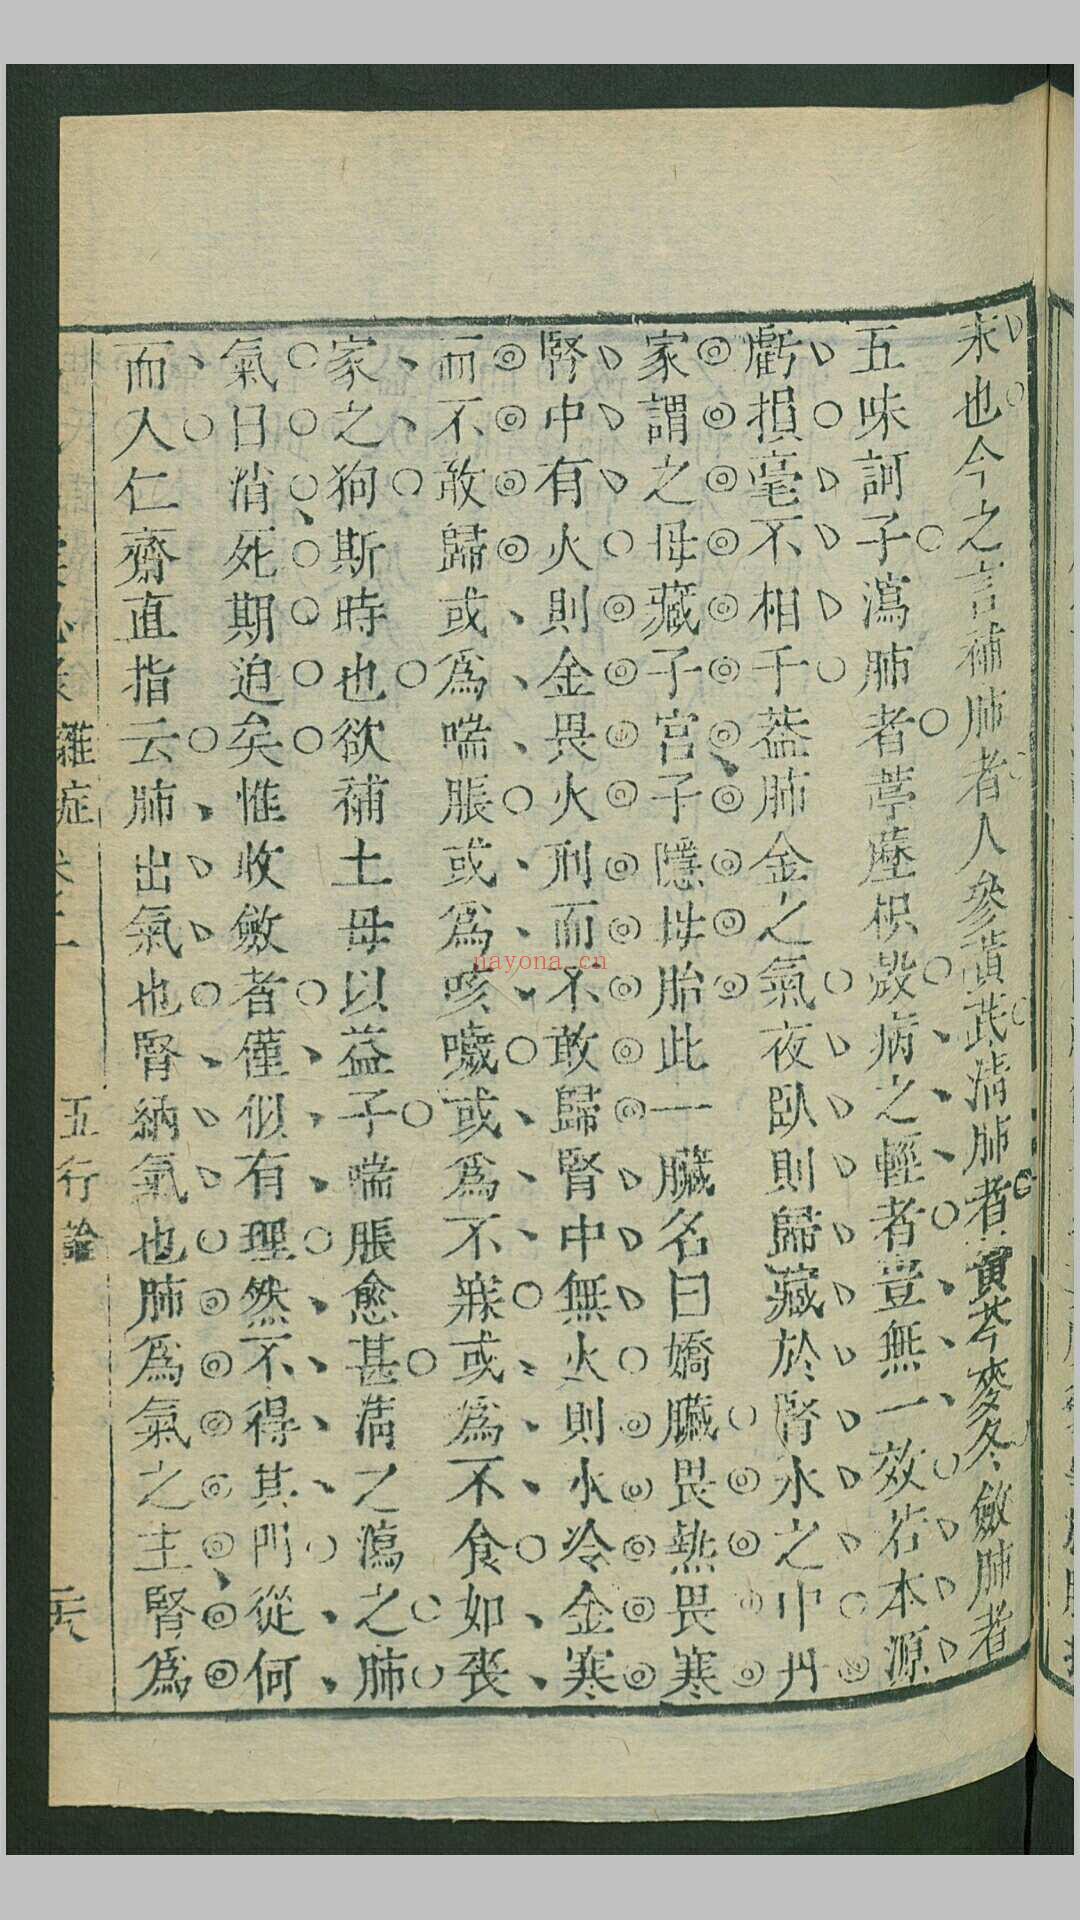 未也今之言補肺者人參黃芪清肺者黃芩麥冬斂肺者
五味訶子瀉肺者葶藶枳殼病之輕者豈無一效若本源
虧損毫不相干葢肺金之氣夜臥則歸藏於腎水之中丹
家謂之母藏子宮子隱母胎此一臟名曰嬌臟畏熱畏寒
腎中有火則金畏火刑而不敢歸腎中無火則水冷金寒
而不敢歸或爲喘脹或爲咳噦或爲不寐或爲不食如喪
家之狗斯時也欲補土母以益子喘脹愈甚清之瀉之肺
氣日消死期迫矣惟收斂者僅似有理然不得其門從何
而入仁齋直指云肺出氣也腎納氣也肺爲氣之主腎爲
雜症
五行論
nayona.cn